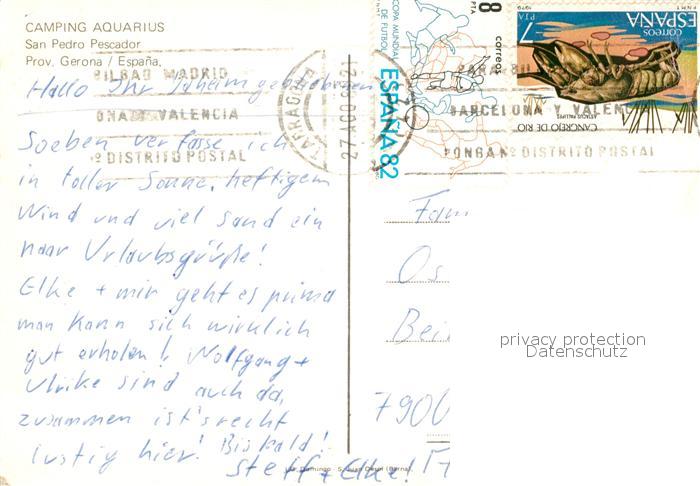 CAMPING AQUARIUS
San Pedro Pescador
Prov. Gerona / España.
Hallo Ihr Daheimgebliebenen
Soeben verfasse ich
in toller Sonne, heftigem
Wind und viel Sand ein
paar Urlaubsgrüße!
Elke + mir geht es prima
man kann sich wirklich
gut erholen! Wolfgang +
Ulrike sind auch da,
zusammen ist's recht
lustig hier! Bis bald!
Steff + Elke!
BILBAO MADRID
VALENCIA
DISTRITO POSTAL
27 AGO
BARCELONA Y VALEN
PONGA Nº DISTRITO POSTAL
COPA MUNDIAL
DE FUTBOL
ESPAÑA 82
8
PTA
correos
1979
F.N.M.T.
7
PTA
correos
ESPAÑA
CANGREJO DE RIO
Fam
Os
Bei
7900
privacy protection
Datenschutz